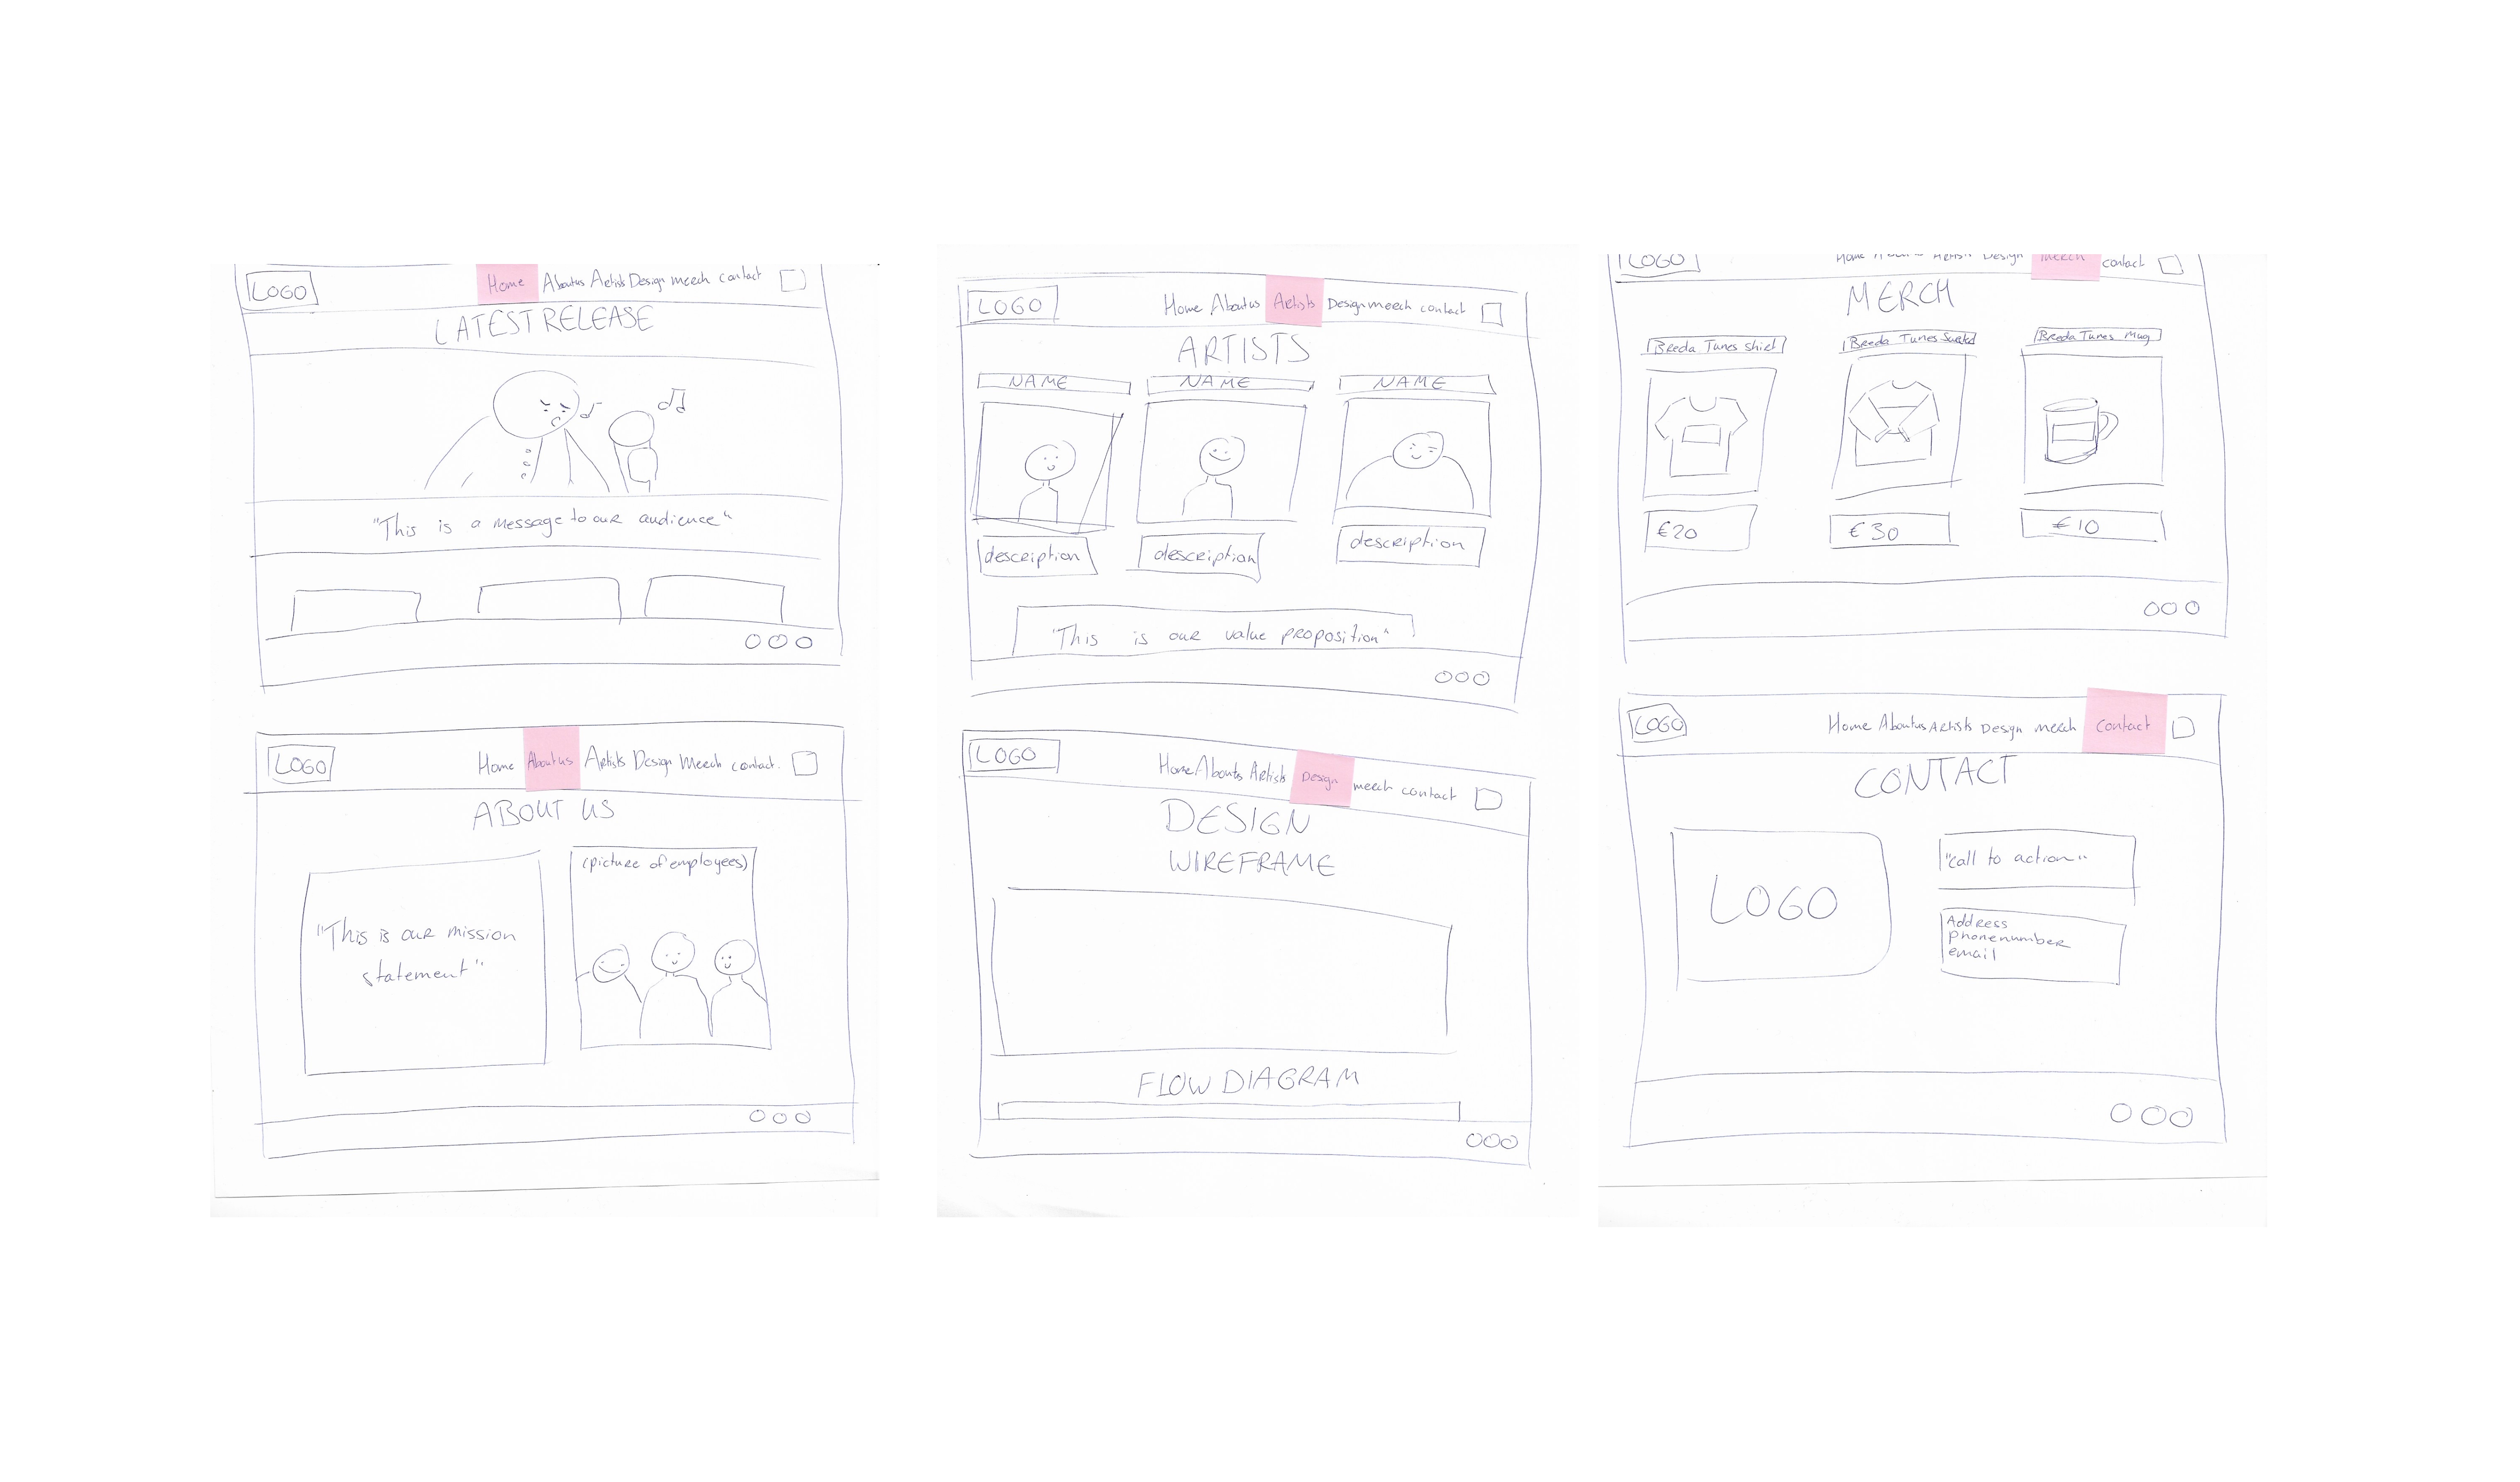 LOGO
Home About us Artists Design merch contact
LATEST RELEASE
"This is a message to our audience"
LOGO
Home About us Artists Design Merch contact.
ABOUT US
"This is our mission
statement"
(picture of employees)
LOGO
Home About us Artists Design merch contact
ARTISTS
NAME NAME NAME
description description description
"This is our value proposition"
LOGO
Home Abouts Artists Design merch contact
DESIGN
WIREFRAME
FLOW DIAGRAM
LOGO
Home Artists Design merch contact
MERCH
Breda Tunes shirt Breda Tunes Breda Tunes Mug
€20 €30 €10
LOGO
Home About us Artists Design merch contact
CONTACT
LOGO
"call to action"
Address
phonenumber
email